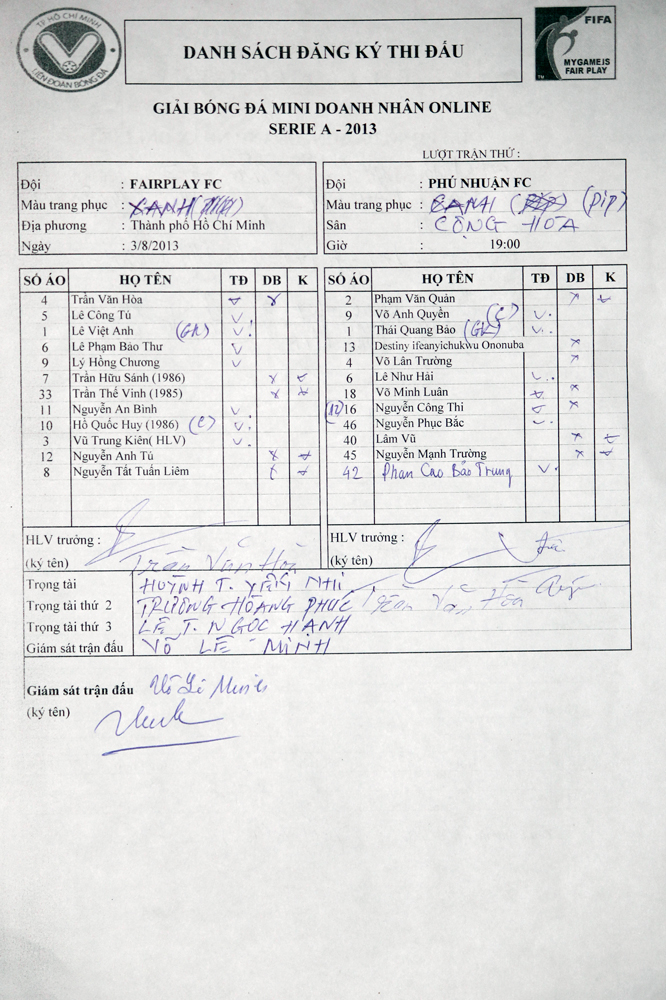 TP HỒ CHÍ MINH
LIÊN ĐOÀN BÓNG ĐÁ
DANH SÁCH ĐĂNG KÝ THI ĐẤU
FIFA
MYGAMEIS
FAIR PLAY
TM
GIẢI BÓNG ĐÁ MINI DOANH NHÂN ONLINE
SERIE A - 2013
LƯỢT TRẬN THỨ :
Đội : FAIRPLAY FC
Màu trang phục : XANH
Địa phương : Thành phố Hồ Chí Minh
Ngày : 3/8/2013
Đội : PHÚ NHUẬN FC
Màu trang phục : (PIP)
Sân : CỘNG HÒA
Giờ : 19:00
SỐ ÁO HỌ TÊN TĐ DB K
4 Trần Văn Hòa
5 Lê Công Tú
1 Lê Việt Anh (GK)
6 Lê Phạm Bảo Thư
9 Lý Hồng Chương
7 Trần Hữu Sánh (1986)
33 Trần Thế Vinh (1985)
11 Nguyễn An Bình
10 Hồ Quốc Huy (1986) (C)
3 Vũ Trung Kiên( HLV)
12 Nguyễn Anh Tú
8 Nguyễn Tất Tuấn Liêm
SỐ ÁO HỌ TÊN TĐ DB K
2 Phạm Văn Quản
9 Võ Anh Quyền (C)
1 Thái Quang Bảo (GK)
13 Destiny ifeanyichukwu Ononuba
4 Võ Lân Trường
6 Lê Như Hải
18 Võ Minh Luân
(12) 16 Nguyễn Công Thi
46 Nguyễn Phục Bắc
40 Lâm Vũ
45 Nguyễn Mạnh Trường
42 Phan Cao Bảo Trung
HLV trưởng :
(ký tên) Trần Văn Hòa
HLV trưởng :
(ký tên)
Trọng tài HUỲNH T. YẾN NHI
Trọng tài thứ 2 TRƯƠNG HOÀNG PHÚC Trần Văn Hòa
Trọng tài thứ 3 LÊ T. NGỌC HẠNH
Giám sát trận đấu VÕ LÊ MINH
Giám sát trận đấu Võ Lê Minh
(ký tên)